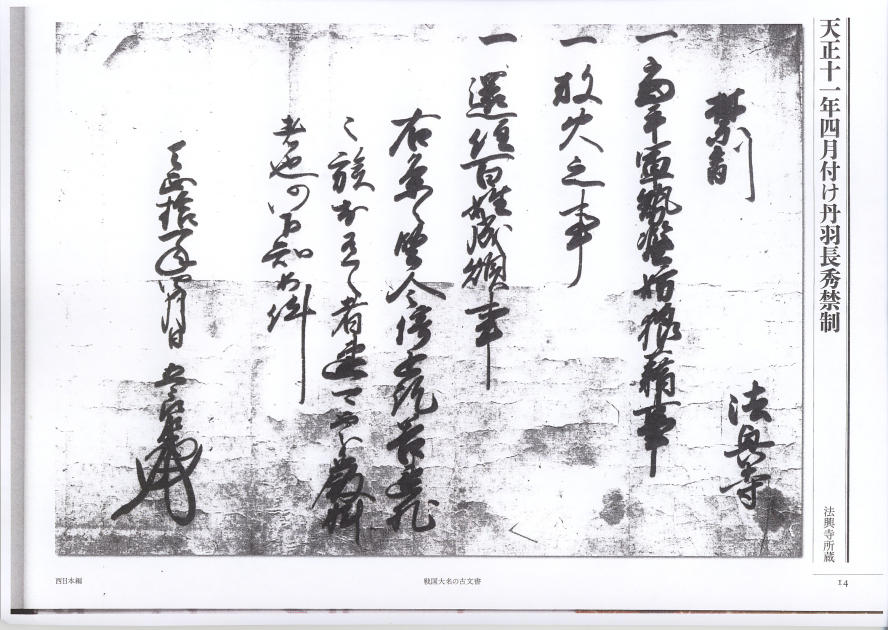 天正十一年四月付け丹羽長秀禁制
法興寺所蔵
禁制
法興寺
一 當手軍勢濫妨狼藉事
一 放火之事
一 還住百姓成煩事
右条々堅令停止訖若違犯
之族於之者速可処厳科
者也仍下知如件
天正拾一年四月日 五郎左衛門
西日本編
戦国大名の古文書
14